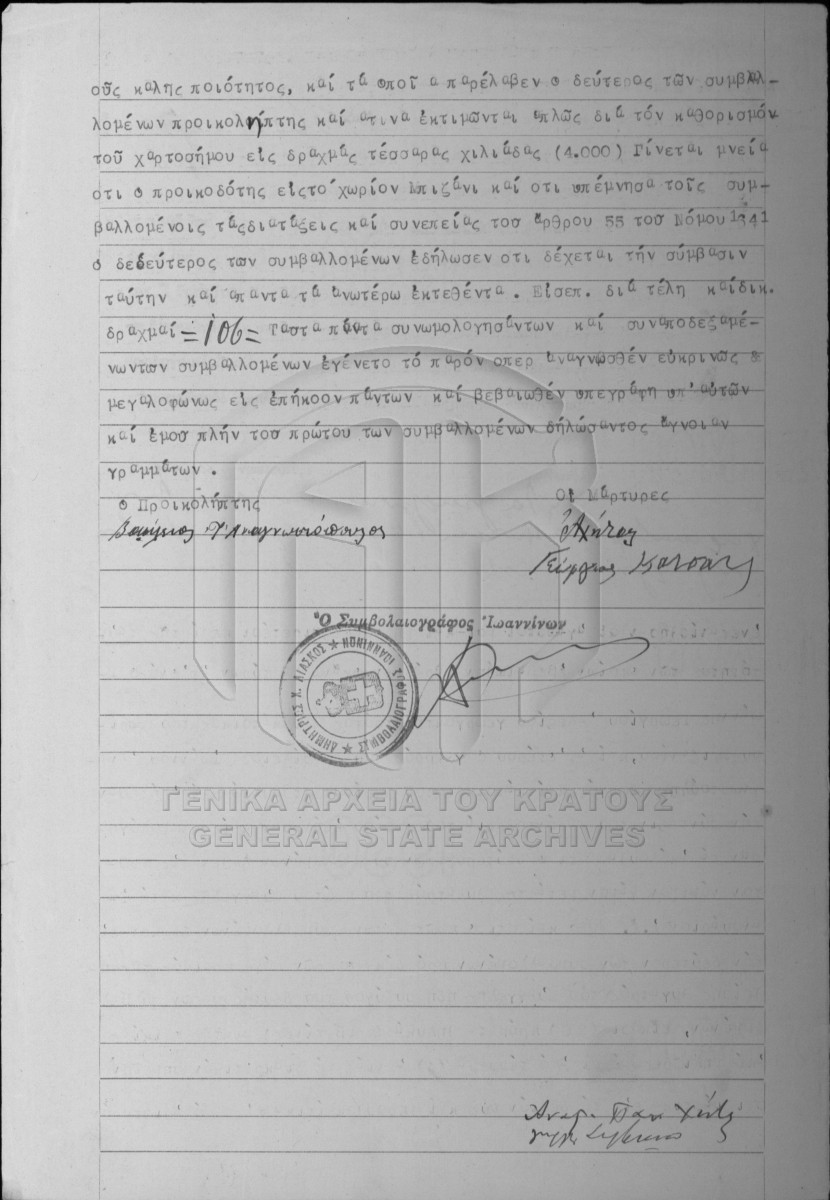 οῦς καλης ποιότητος, καί τά οποῖ α παρέλαβεν ο δεύτερος τῶν συμβαλ-
λομένων προικολήπτης καί ατινα ἐκτιμῶνται απλῶς διά τόν καθορισμόν
τοῦ χαρτοσήμου εἰς δραχμάς τέσσαρας χιλιάδας (4.000) Γίνεται μνεία
οτι ο προικοδότης εἰςτό χωρίον Μπιζάνι καί οτι υπέμνησα τοῖς συμ-
βαλλομένοις τάςδιατάξεις καί συνεπείας τοσ ἄρθρου 55 τοσ Νόμου 1341
ο δεδεύτερος των συμβαλλομένων ἐδήλωσεν οτι δέχεται τήν σύμβασιν
ταύτην καί απαντα τά ανωτέρω ἐκτεθέντα . Εἰσεπ. διά τέλη καίδικ.
δραχμαί =106= Ταστα πάντα συνωμολογησάντων καί συναποδεξαμέ-
νωντων συμβαλλομένων ἐγένετο τό παρόν οπερ ἀναγνωσθέν εὐκρινῶς &
μεγαλοφώνως εἰς ἐπήκοον πάντων καί βεβαιωθέν υπεγράφη υπ'αὐτῶν
καί ἐμοσ πλήν τοσ πρώτου των συμβαλλομένων δήλώσαντος ἄγνοιαν
γραμμάτων .
ο Προικολήπτης Οἱ Μάρτυρες
Γεώργιος
Ὁ Συμβολαιογράφος Ἰωαννίνων
ΔΗΜΗΤΡΙΟΣ Χ. ΛΙΑΣΚΟΣ ★ ΣΥΜΒΟΛΑΙΟΓΡΑΦΟΣ ΙΩΑΝΝΙΝΩΝ ★
ΓΕΝΙΚΑ ΑΡΧΕΙΑ ΤΟΥ ΚΡΑΤΟΥΣ
GENERAL STATE ARCHIVES